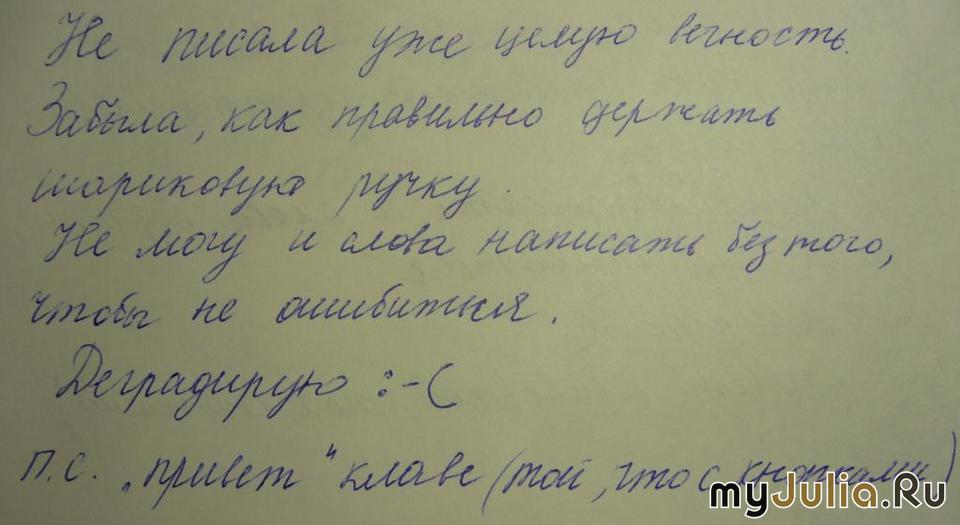 Не писала уже целую вечность.
Забыла, как правильно держать
шариковую ручку.
Не могу и слова написать без того,
чтобы не ошибиться.
Деградирую :-(
П.С. „привет" клаве (той, что с кнопками)
myJulia.Ru